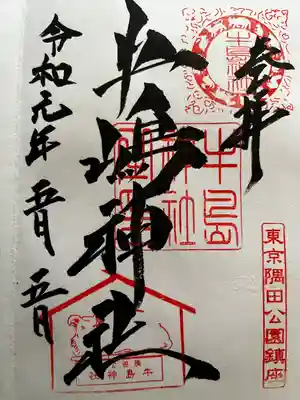 奉拝
牛嶋神社
令和元年 五月 五日
牛島神社
東京隅田公園鎮座
牛島神社